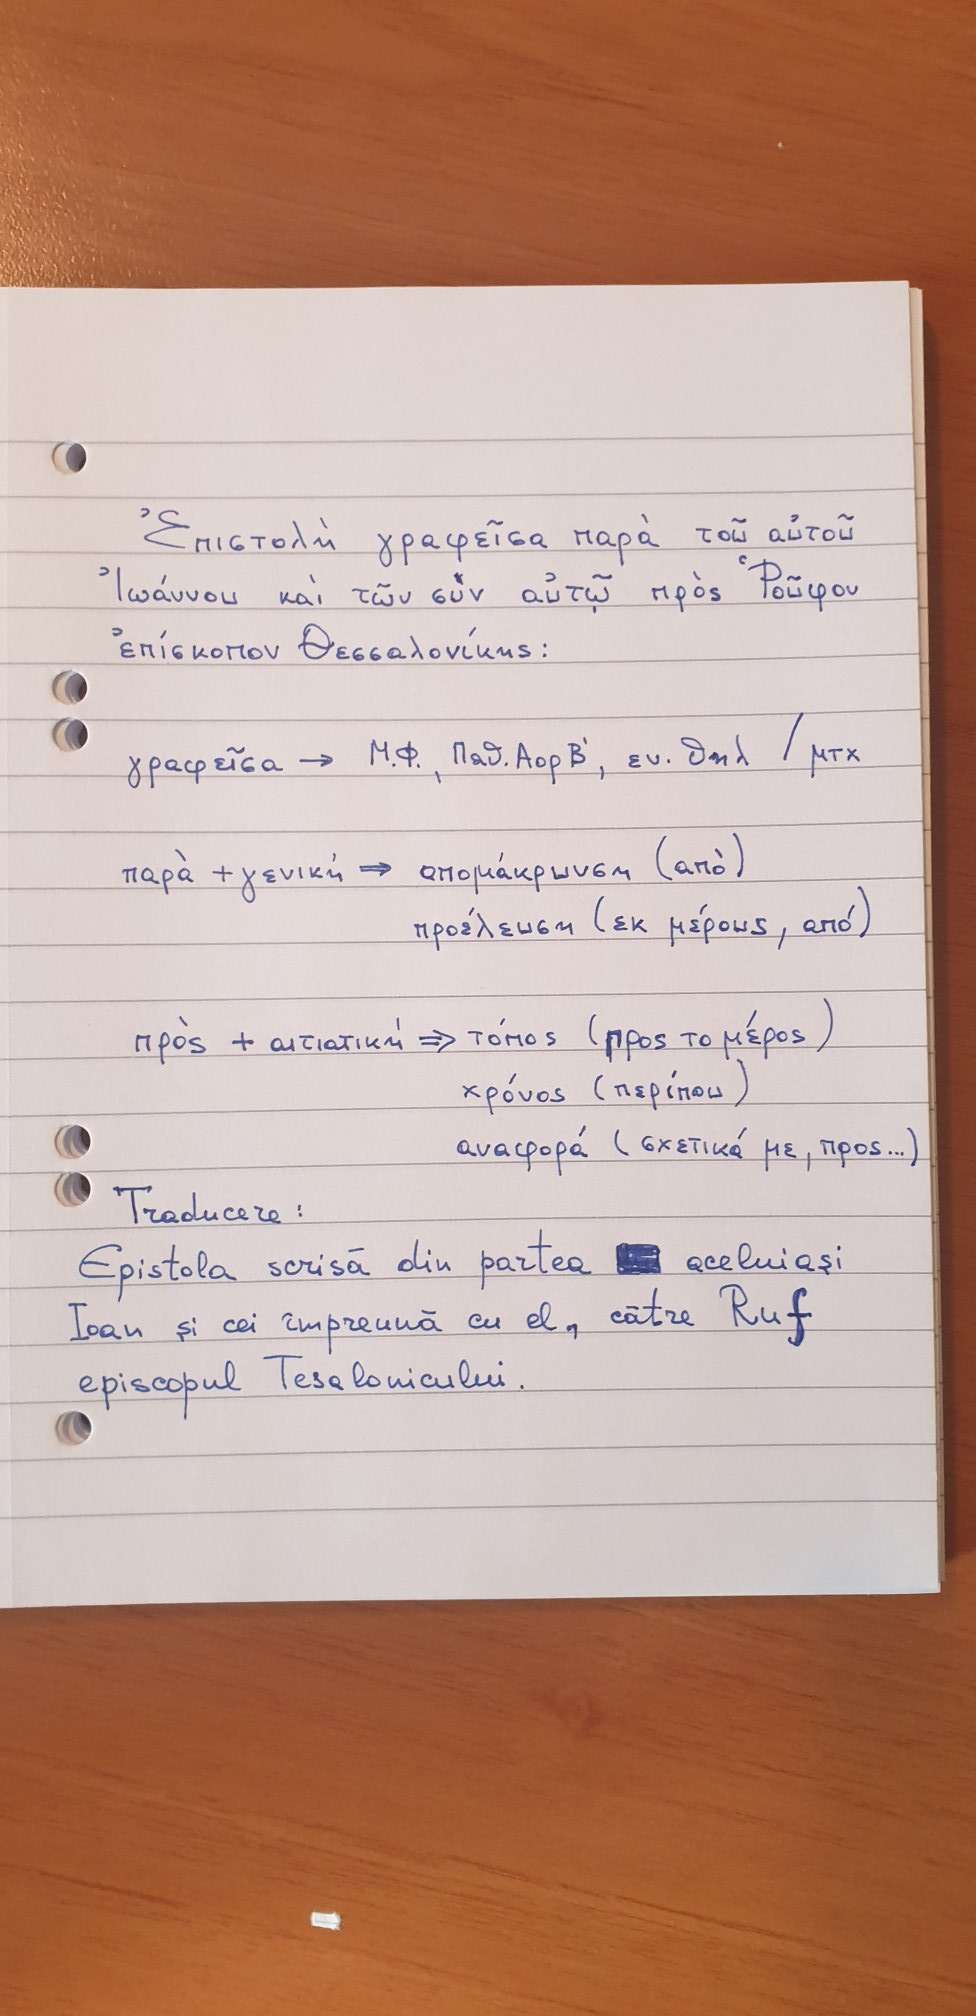 Ἐπιστολὴ γραφεῖσα παρὰ τοῦ αὐτοῦ
Ἰωάννου καὶ τῶν σὺν αὐτῷ πρὸς Ῥοῦφον
ἐπίσκοπον Θεσσαλονίκης:
γραφεῖσα → Μ.Φ., Παθ. Αορ Β', εν. θηλ / μτχ
παρὰ + γενική ⇒ απομάκρυνση (από)
προέλευση (εκ μέρους, από)
πρὸς + αιτιατική ⇒ τόπος (προς το μέρος)
χρόνος (περίπου)
αναφορά (σχετικά με, προς...)
Traducere:
Epistola scrisă din partea aceluiași
Ioan și cei împreună cu el, către Ruf
episcopul Tesalonicului.